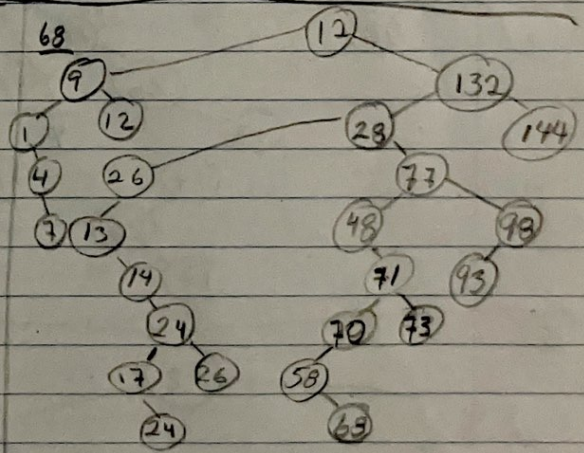 68
12
9 132
1 12 28 144
4 26 77
7 13 48 98
14 71 93
24 70 73
17 26 58
24